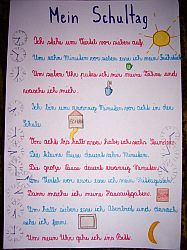 Mein Schultag
Ich stehe um Viertel vor sieben auf.
Um zehn Minuten vor sieben esse ich mein Frühstück.
Um sieben Uhr putze ich mir meine Zähne und
wasche ich mich.
Ich bin um zwanzig Minuten vor acht in der
Schule.
Von acht bis halb zwei habe ich sechs Stunden.
Die kleine Pause dauert zehn Minuten.
Die große Pause dauert zwanzig Minuten.
Um Viertel vor zwei esse ich mein Mittagessen.
Dann mache ich meine Hausaufgaben.
Um halb sieben esse ich Abendbrot und danach
sehe ich fern.
Um neun Uhr gehe ich ins Bett.